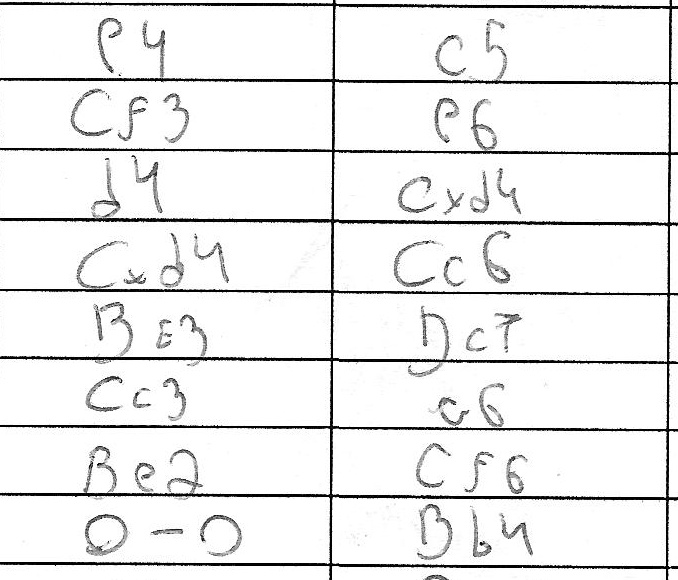 e4 c5
Cf3 e6
d4 Cxd4
Cxd4 Cc6
Be3 Dc7
Cc3 a6
Be2 Cf6
O-O Bb4